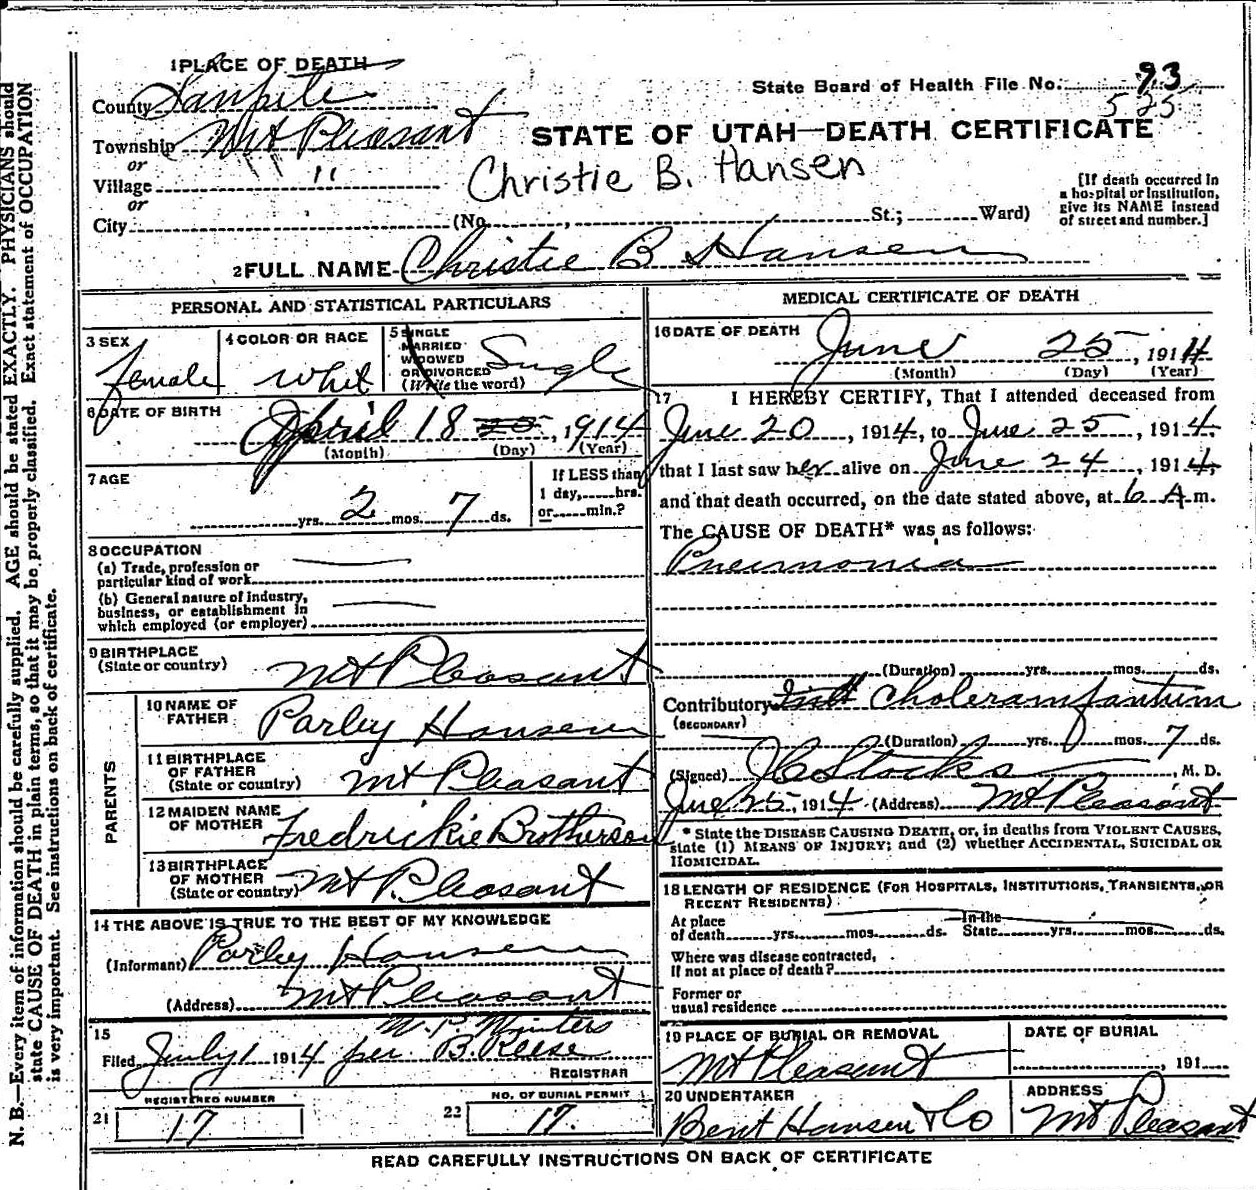 1 PLACE OF DEATH
County Sanpete
State Board of Health File No. 93
525
Township Mt Pleasant
or
STATE OF UTAH—DEATH CERTIFICATE
Village "
or
Christie B. Hansen
[If death occurred in
a hospital or institution,
give its NAME instead
of street and number.]
City (No. , St.; Ward)
2 FULL NAME Christie B Hansen
PERSONAL AND STATISTICAL PARTICULARS
3 SEX
female
4 COLOR OR RACE
whit
5 SINGLE
MARRIED
WIDOWED
OR DIVORCED
(Write the word)
Single
6 DATE OF BIRTH
April 18 25, 1914
(Month) (Day) (Year)
7 AGE
yrs. 2 mos. 7 ds.
If LESS than
1 day, hrs.
or min.?
8 OCCUPATION
(a) Trade, profession or
particular kind of work
(b) General nature of industry,
business, or establishment in
which employed (or employer)
9 BIRTHPLACE
(State or country)
Mt Pleasant
PARENTS
10 NAME OF
FATHER
Parley Hansen
11 BIRTHPLACE
OF FATHER
(State or country)
Mt Pleasant
12 MAIDEN NAME
OF MOTHER
Fredrickie Brotherson
13 BIRTHPLACE
OF MOTHER
(State or country)
Mt Pleasant
14 THE ABOVE IS TRUE TO THE BEST OF MY KNOWLEDGE
(Informant) Parley Hansen
(Address) Mt Pleasant
15
W. P. Winters
Filed July 1 1914 per B. Reese
REGISTRAR
21
REGISTERED NUMBER
17
22
NO. OF BURIAL PERMIT
17.
MEDICAL CERTIFICATE OF DEATH
16 DATE OF DEATH
June 25, 1914
(Month) (Day) (Year)
17 I HEREBY CERTIFY, That I attended deceased from
June 20, 1914, to June 25, 1914,
that I last saw her alive on June 24, 1914,
and that death occurred, on the date stated above, at 6 A.m.
The CAUSE OF DEATH* was as follows:
Pneumonia
(Duration) yrs. mos. ds.
Contributory Cholera infantum
(SECONDARY)
(Duration) yrs. mos. 7 ds.
(Signed) Stocks, M. D.
June 25, 1914 (Address) Mt Pleasant
* State the DISEASE CAUSING DEATH, or, in deaths from VIOLENT CAUSES,
state (1) MEANS OF INJURY; and (2) whether ACCIDENTAL, SUICIDAL OR
HOMICIDAL.
18 LENGTH OF RESIDENCE (FOR HOSPITALS, INSTITUTIONS, TRANSIENTS, OR
RECENT RESIDENTS)
At place
of death yrs. mos. ds.
In the
State yrs. mos. ds.
Where was disease contracted,
if not at place of death?
Former or
usual residence
19 PLACE OF BURIAL OR REMOVAL
Mt Pleasant
DATE OF BURIAL
, 191
20 UNDERTAKER
Bent Hansen & Co
ADDRESS
Mt Pleasant
READ CAREFULLY INSTRUCTIONS ON BACK OF CERTIFICATE
N. B.—Every item of information should be carefully supplied. AGE should be stated EXACTLY. PHYSICIANS should
state CAUSE OF DEATH in plain terms, so that it may be properly classified. Exact statement of OCCUPATION
is very important. See instructions on back of certificate.